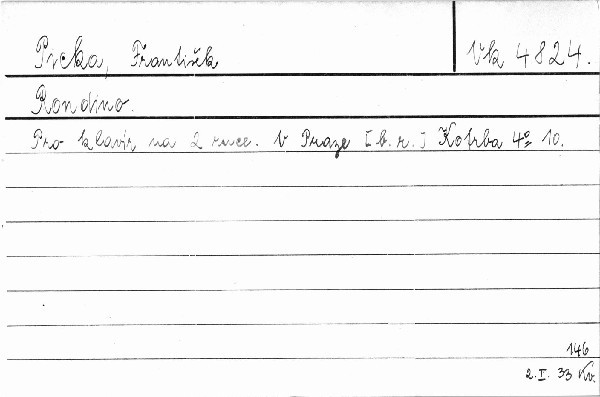 Picka, František
Vk 4824.
Rondino.
Pro klavír na 2 ruce. V Praze [b. r.] Kotrba 4° 10.
146
2. I. 33 Kv.